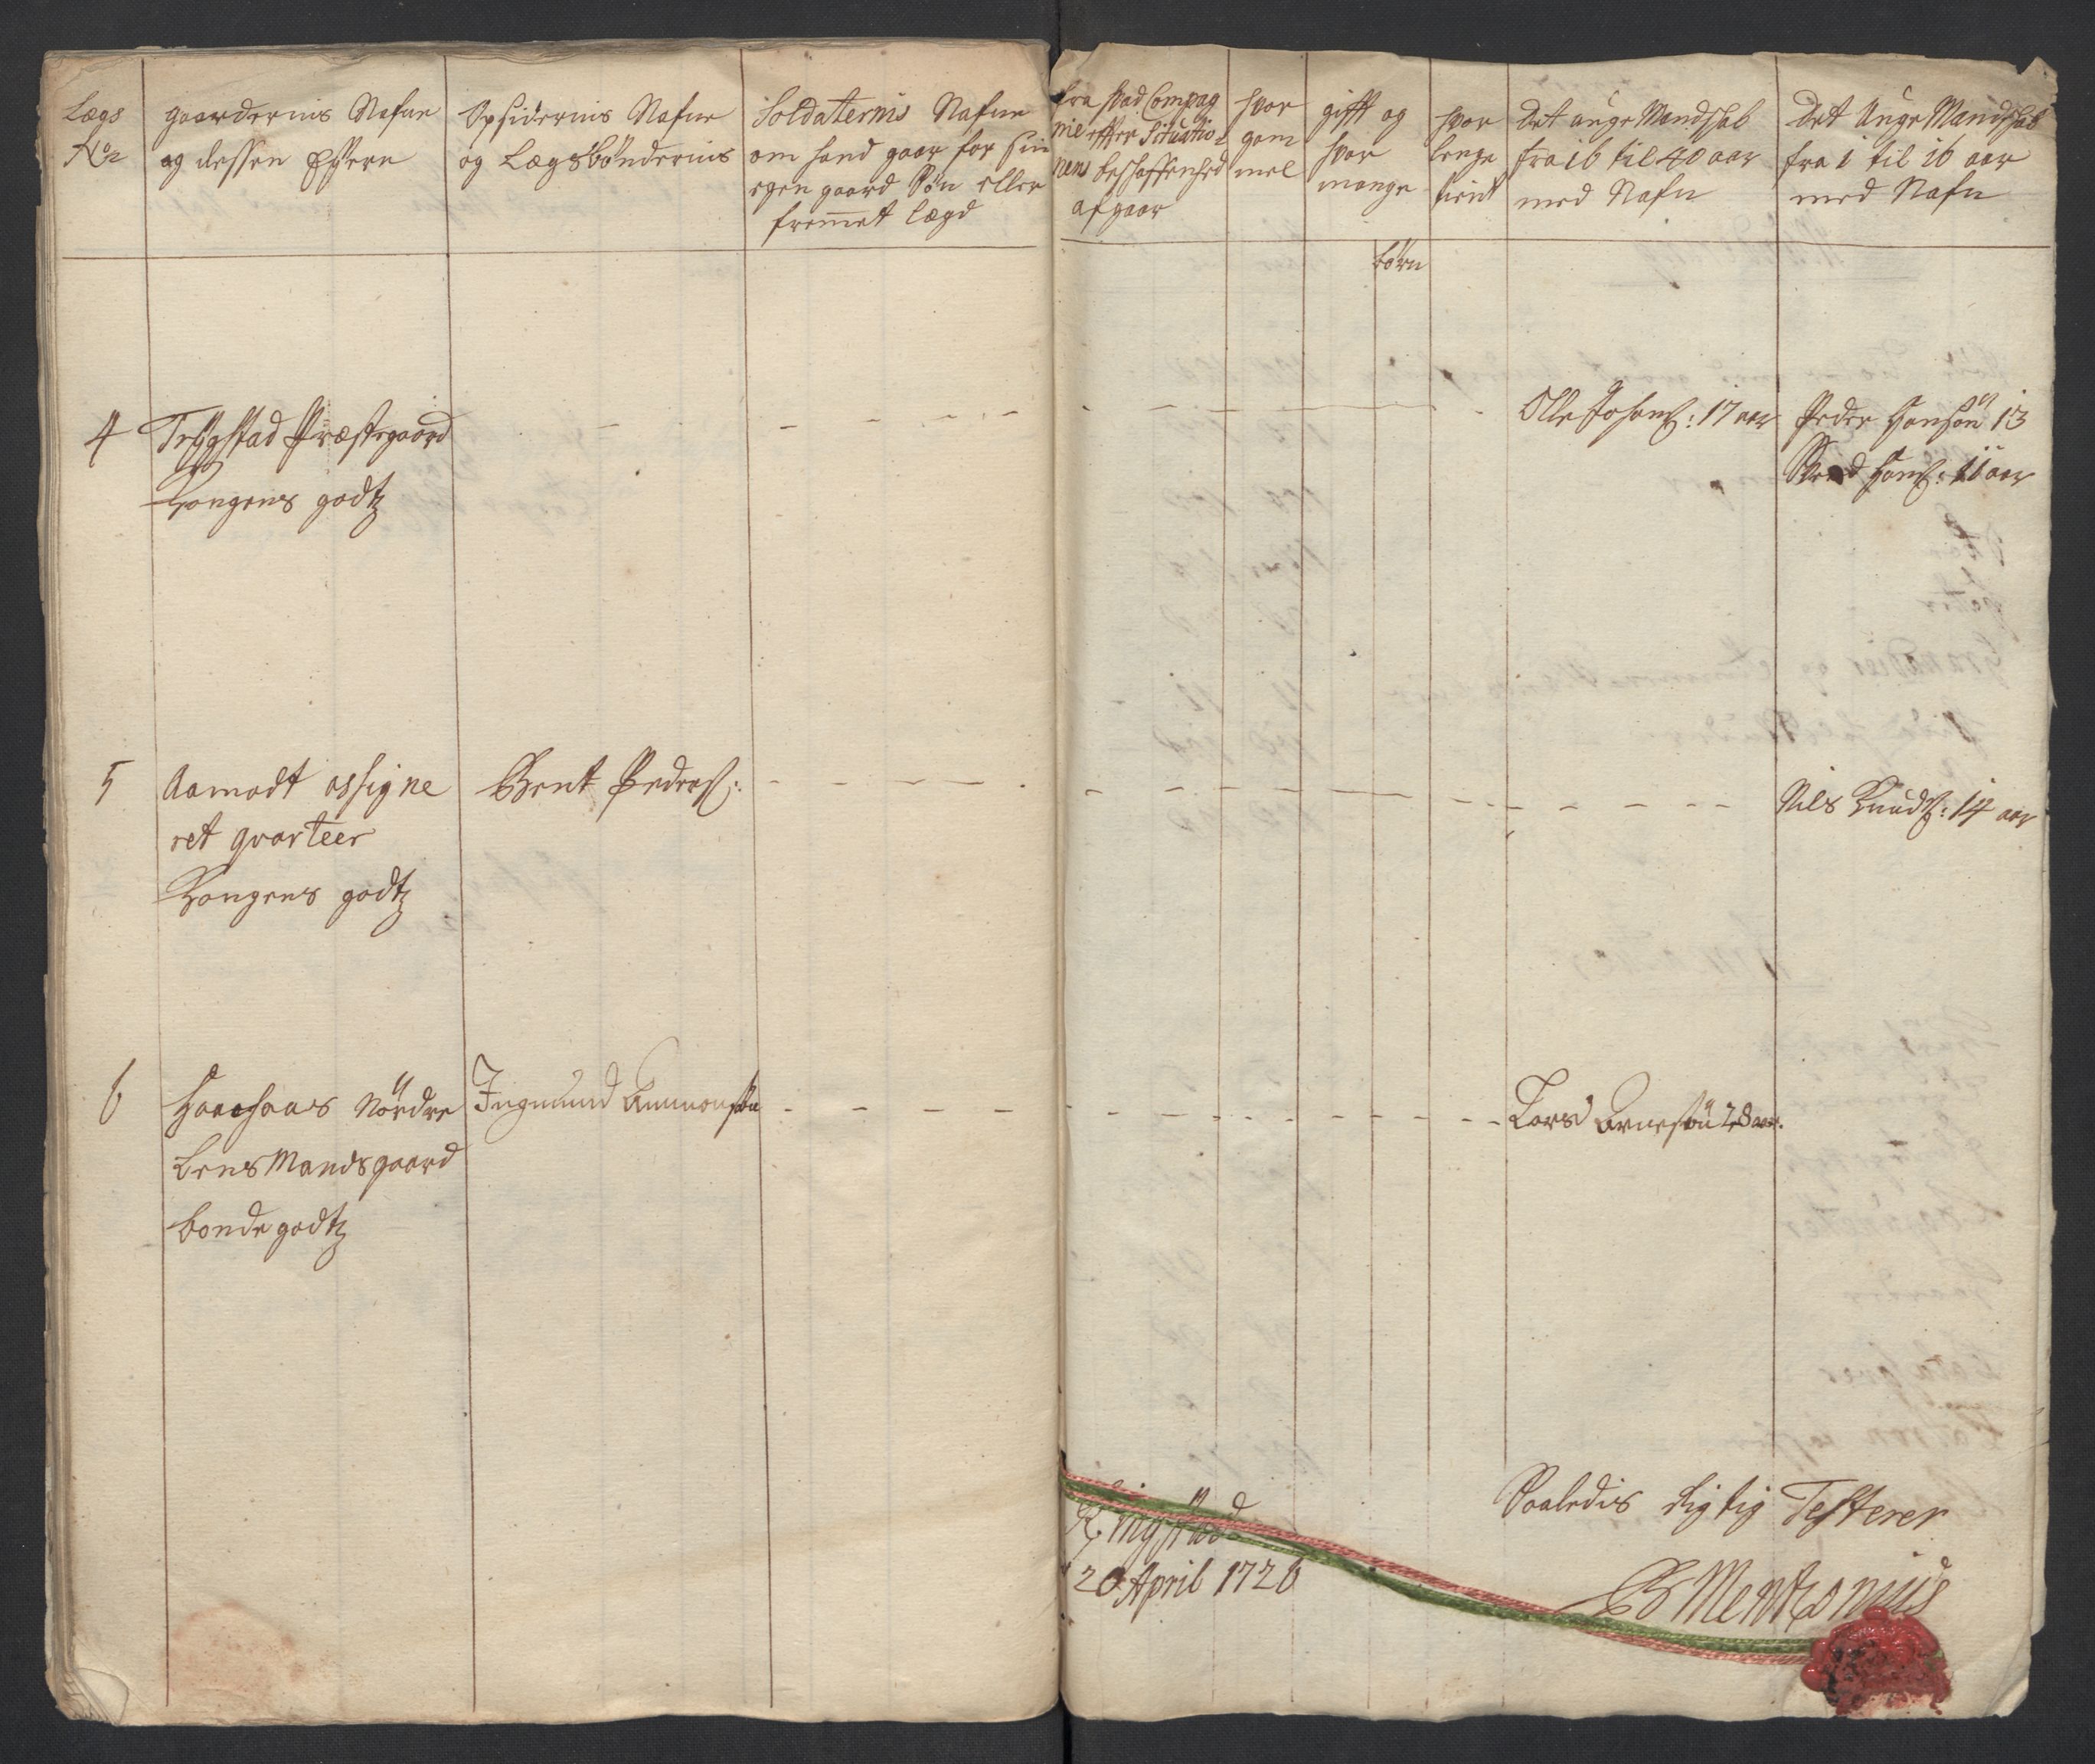 Lægs
No
gaardernis Nafne
og dessen Eÿere
Opsidernis Nafne
og Lægsbøndernis
Soldaternis Nafne
om hand gaar for sin
egen gaard Søn eller
fremmet lægd
fra hvad Compag
nie effter Situatio-
nens beschaffenhed
afgaar
hvor
gam
mel
gifft og
hvor
mange
børn
hvor
lenge
tient
Det unge Mandschab
fra 16 til 40 aar
med Nafn
Det Unge Mandschab
fra 1 til 16 aar
med Nafn
4 Trÿgstad Præstegaard
Kongens godtz
Olle Johans: 17 aar
Peder Hansøn 13
Hans: 11 aar
5 Aamodt assigne
ret qvarteer
Kongens godtz
Bent Peders:
Nils Knuds: 14 aar
6 Haachaas Nørdre
LensMandsgaard
bonde godtz
Ingmund Ammonsøn
Lars Arnesøn 28 aar.
Saaledis rigtig Testerer
20 April 1726